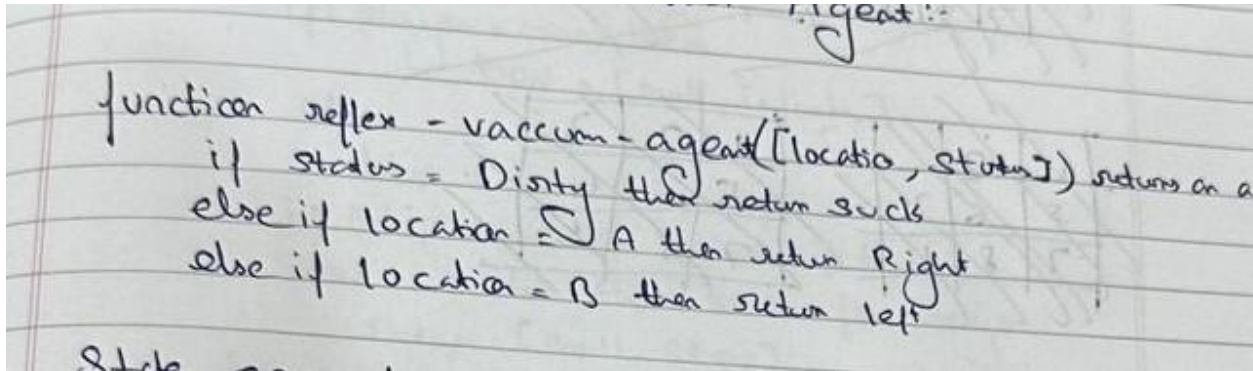 Agent:-
function reflex - vaccum - agent([locatio, Status]) returns an a
if status = Dirty then return suck
else if location = A then return Right
else if location = B then return left
State